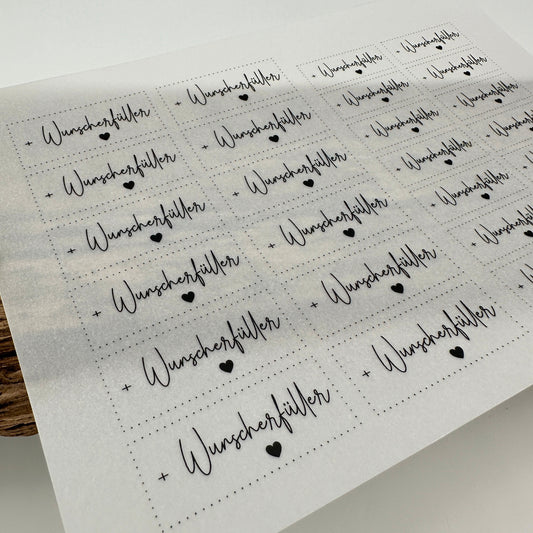 + Wunscherfüller + Wunscherfüller + Wunscherfüller + Wunscherfüller
+ Wunscherfüller + Wunscherfüller + Wunscherfüller + Wunscherfüller
+ Wunscherfüller + Wunscherfüller + Wunscherfüller + Wunscherfüller
+ Wunscherfüller + Wunscherfüller + Wunscherfüller
+ Wunscherfüller + Wunscherfüller + Wunscherfüller
+ Wunscherfüller + Wunscherfüller + Wunscherfüller